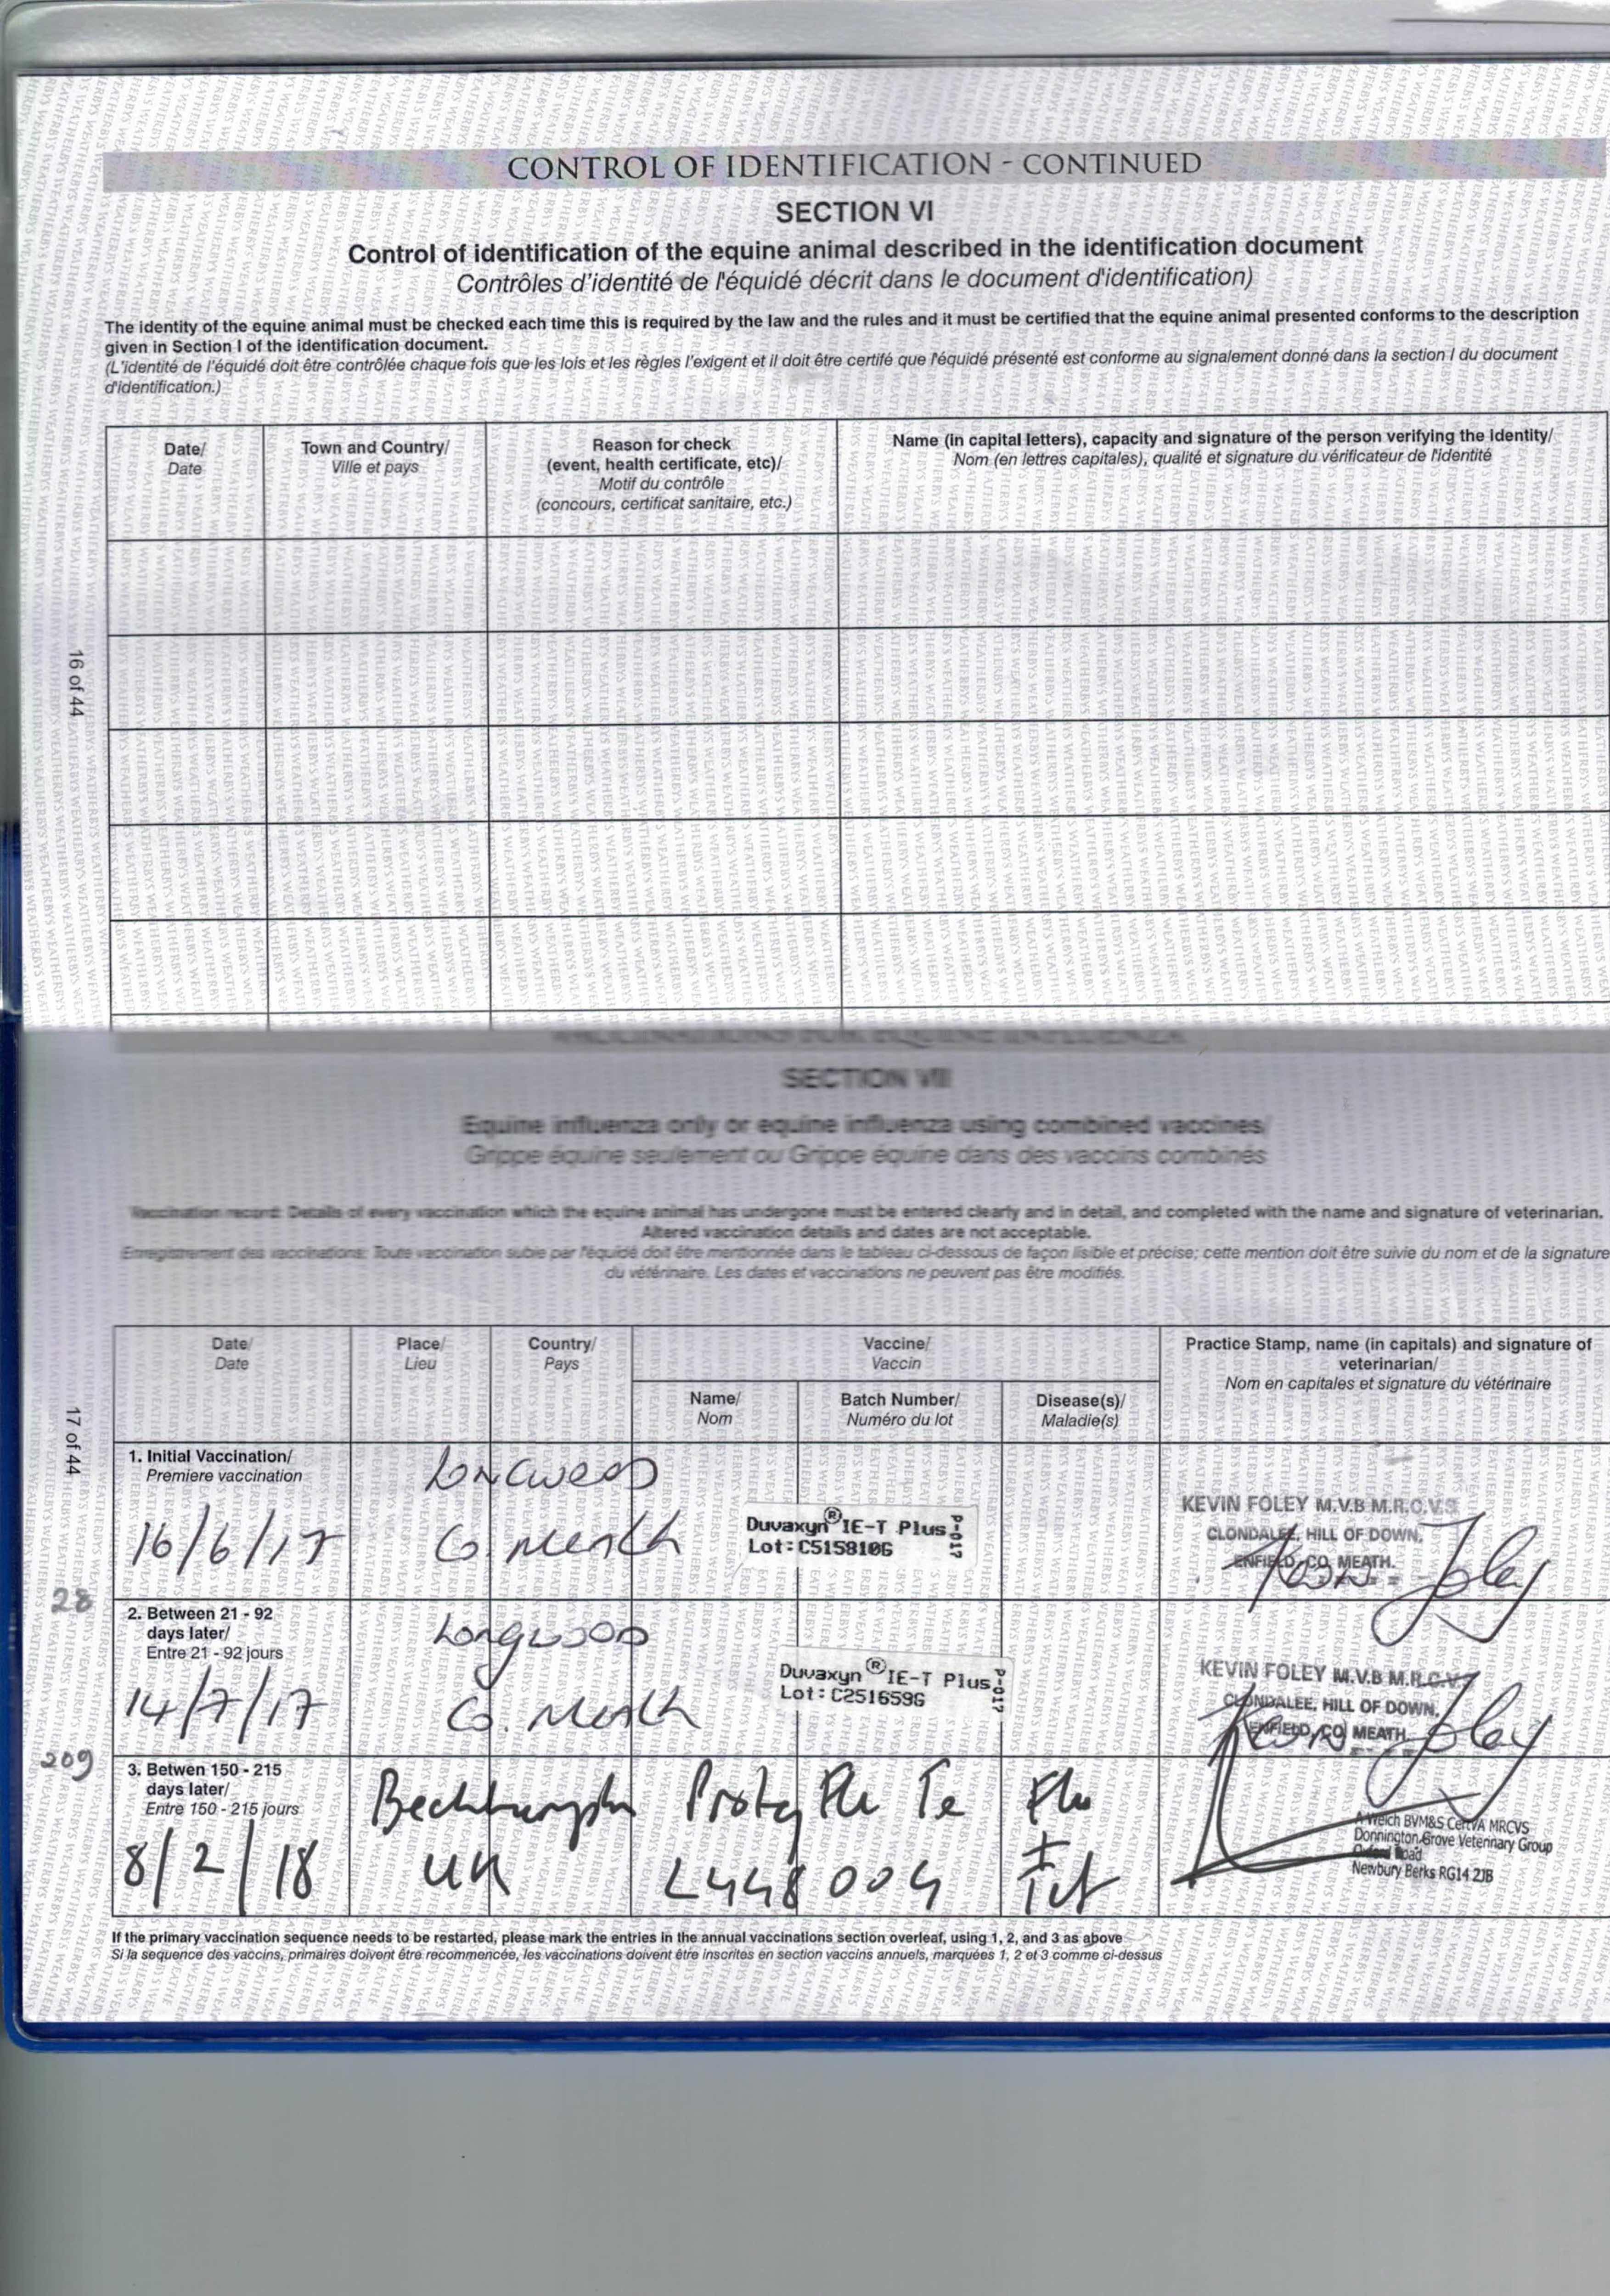 CONTROL OF IDENTIFICATION - CONTINUED
SECTION VI
Control of identification of the equine animal described in the identification document
Contrôles d'identité de l'équidé décrit dans le document d'identification)
The identity of the equine animal must be checked each time this is required by the law and the rules and it must be certified that the equine animal presented conforms to the description
given in Section I of the identification document.
(L'identité de l'équidé doit être contrôlée chaque fois que les lois et les règles l'exigent et il doit être certifé que l'équidé présenté est conforme au signalement donné dans la section I du document
d'identification.)
Date/
Date
Town and Country/
Ville et pays
Reason for check
(event, health certificate, etc)/
Motif du contrôle
(concours, certificat sanitaire, etc.)
Name (in capital letters), capacity and signature of the person verifying the identity/
Nom (en lettres capitales), qualité et signature du vérificateur de l'identité
16 of 44
SECTION VII
Equine influenza only or equine influenza using combined vaccines/
Grippe équine seulement ou Grippe équine dans des vaccins combinés
Vaccination record: Details of every vaccination which the equine animal has undergone must be entered clearly and in detail, and completed with the name and signature of veterinarian.
Altered vaccination details and dates are not acceptable.
Enregistrement des vaccinations: Toute vaccination subie par l'équidé doit être mentionnée dans le tableau ci-dessous de façon lisible et précise; cette mention doit être suivie du nom et de la signature
du vétérinaire. Les dates et vaccinations ne peuvent pas être modifiés.
Date/
Date
Place/
Lieu
Country/
Pays
Vaccine/
Vaccin
Name/
Nom
Batch Number/
Numéro du lot
Disease(s)/
Maladie(s)
Practice Stamp, name (in capitals) and signature of
veterinarian/
Nom en capitales et signature du vétérinaire
17 of 44
1. Initial Vaccination/
Premiere vaccination
16/6/17
Longwood
Co. Meath
Duvaxyn® IE-T Plus
Lot: C515810G
P-017
KEVIN FOLEY M.V.B M.R.C.V.S
CLONDALEE, HILL OF DOWN,
ENFIELD, CO. MEATH.
Kevin Foley
28
2. Between 21 - 92
days later/
Entre 21 - 92 jours
14/7/17
Longwood
Co. Meath
Duvaxyn® IE-T Plus
Lot: C251659G
P-017
KEVIN FOLEY M.V.B M.R.C.V.
CLONDALEE, HILL OF DOWN,
ENFIELD, CO. MEATH
Kevin Foley
209
3. Betwen 150 - 215
days later/
Entre 150 - 215 jours
8/2/18
UK
Proteq Flu Te
L448004
Flu
+
Tet
A Welch BVM&S CertVA MRCVS
Donnington Grove Veterinary Group
Oxford Road
Newbury Berks RG14 2JB
If the primary vaccination sequence needs to be restarted, please mark the entries in the annual vaccinations section overleaf, using 1, 2, and 3 as above
Si la sequence des vaccins, primaires doivent être recommencée, les vaccinations doivent être inscrites en section vaccins annuels, marquées 1, 2 et 3 comme ci-dessus